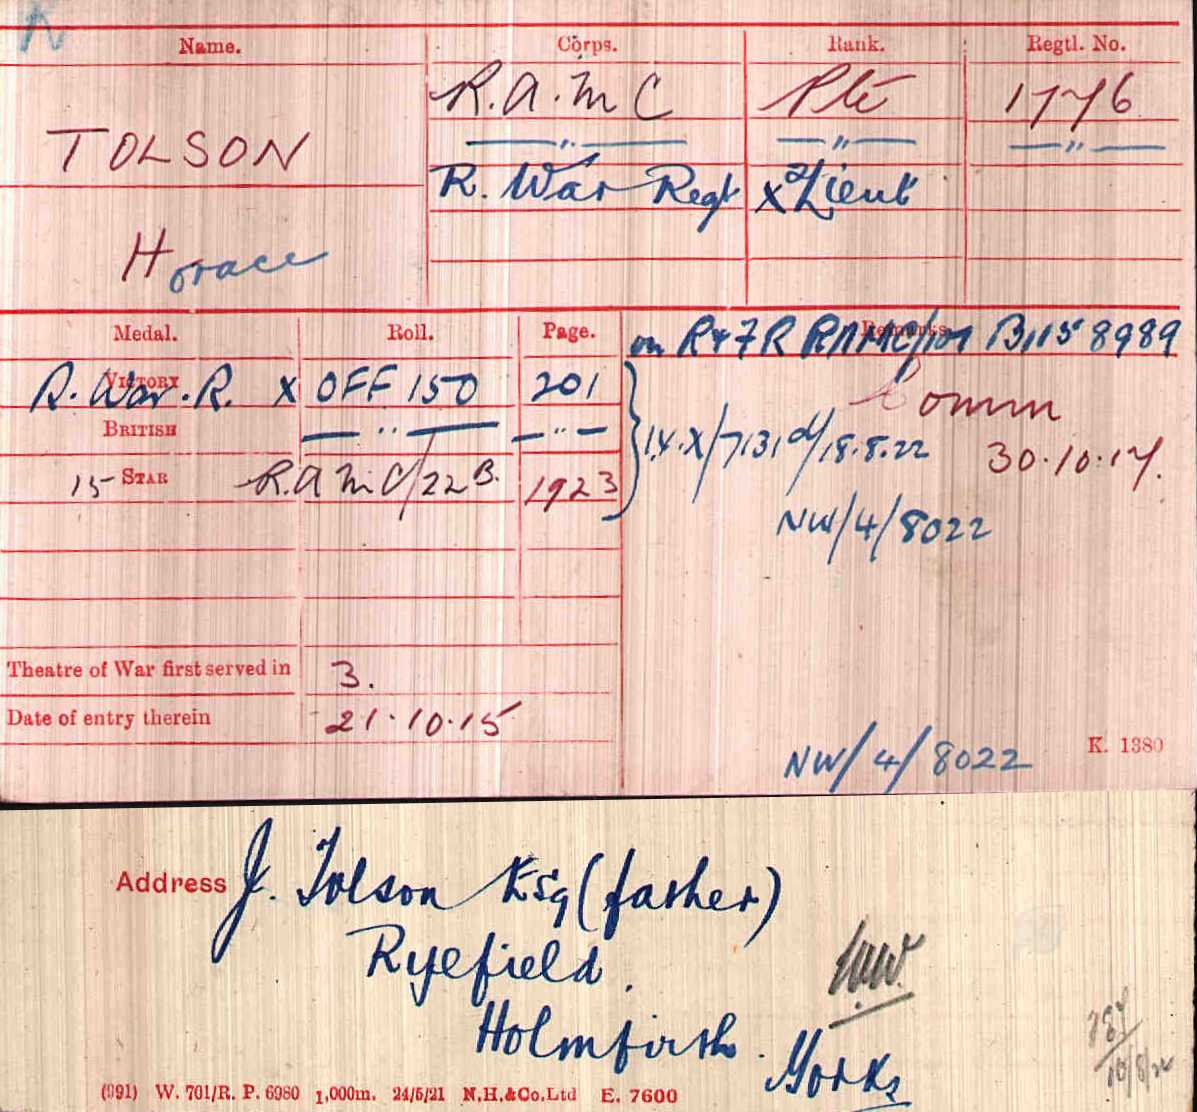 Name. Corps. Rank. Regtl. No.
R.A.M C Pte 1776
TOLSON — " — — " — — " —
R. War Regt X 2/Lieut
Horace
Medal. Roll. Page. Remarks.
on R47R RAMC/101 B1158989
VICTORY R. War. R. X OFF 150 201
Comm
BRITISH — " — — " — 14.X/7131 d/18.8.22 30.10.17.
15 STAR R.A M C/22 B. 1923
NW/4/8022
Theatre of War first served in 3.
Date of entry therein 21.10.15
NW/4/8022 K. 1380
Address J. Tolson Esq (father)
Ryefield.
Holmfirth.
Yorks
(991) W. 761/R. P. 6980 1,000m. 24/5/21 N.H.&Co.Ltd E. 7600